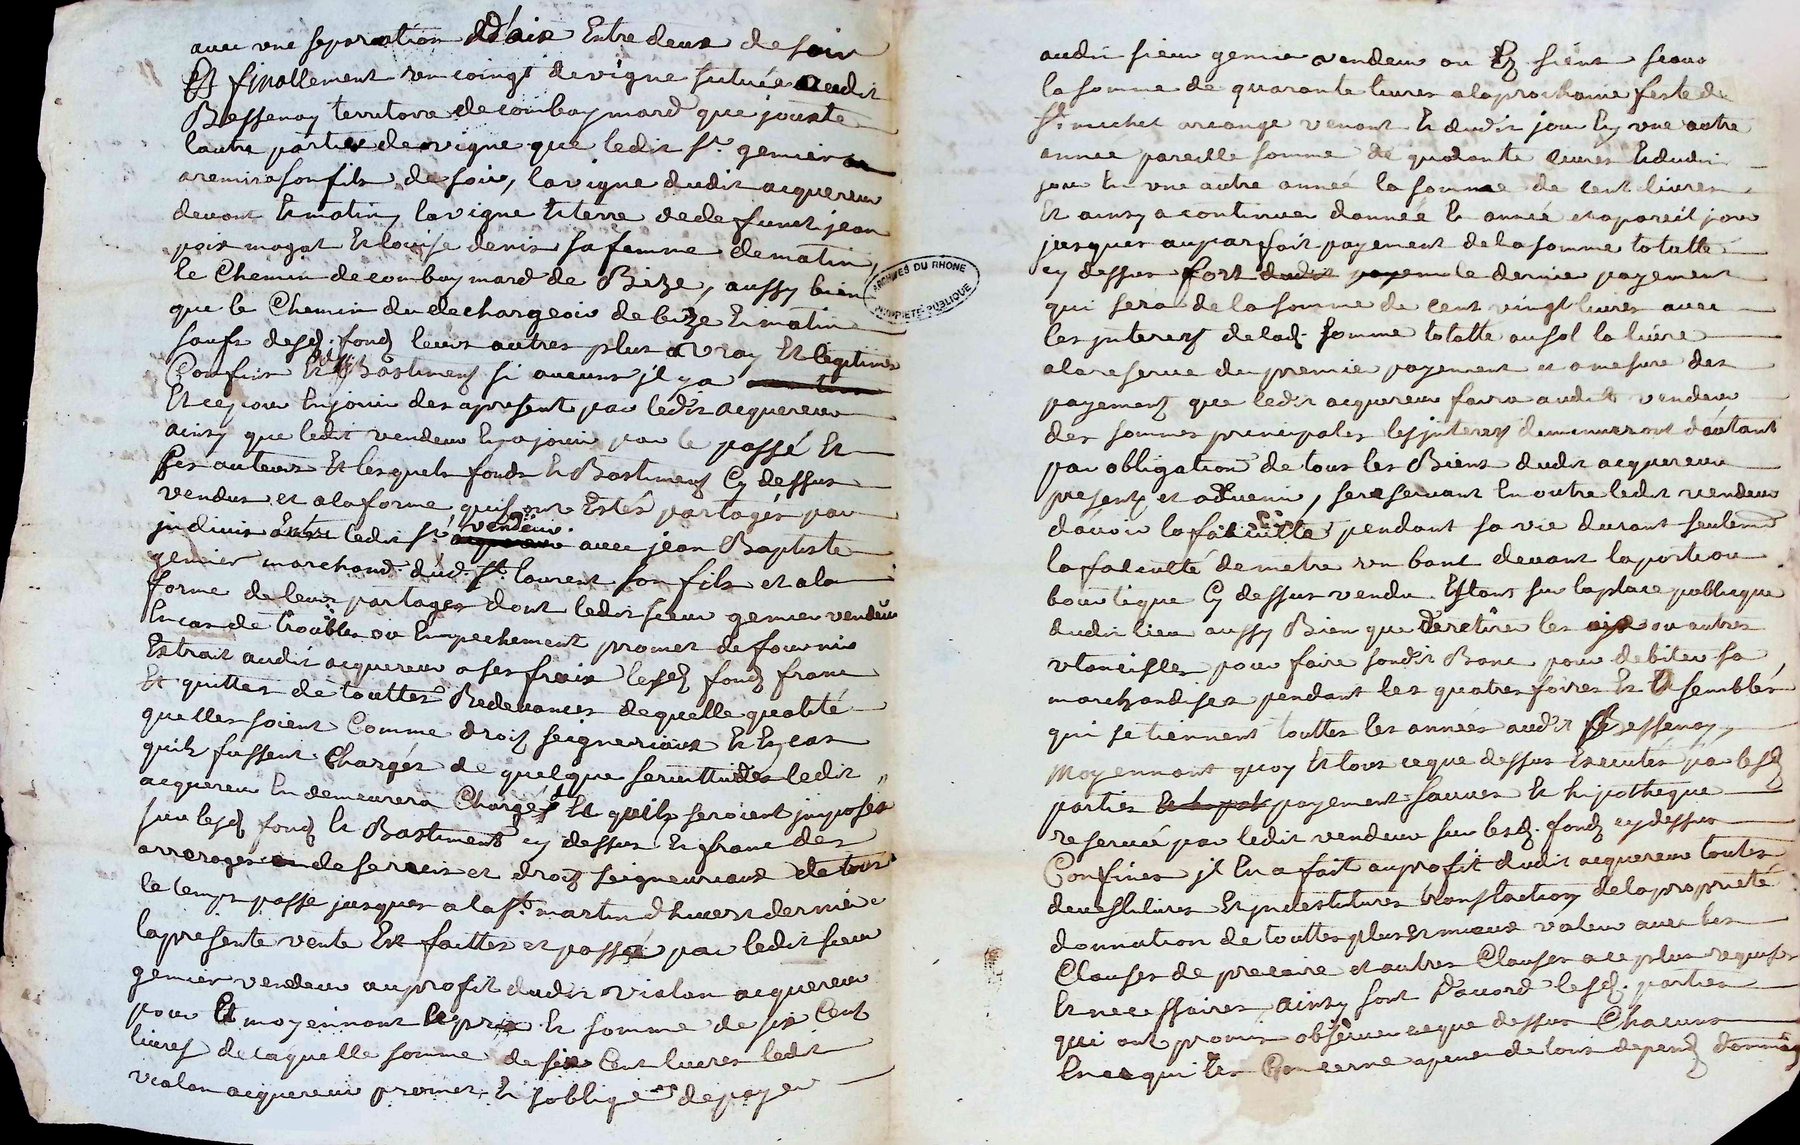 avec une separation d'aix Entre deux de soir
Et finallement un coingt de vigne situeé audit
Bessenay territoire de combaymard que jouxte
lautre partie de vigne que ledit Sr. genier
a remis a son fils de soir, la vigne dudit acquereur
devant Et matin, la vigne Et terre de defunct jean
poix magat Et louise denis sa femme de matin,
le Chemin de combaymard de Bize, aussy bien
que le Chemin du dechargeoir de bize Et matin
saufs desd. fonds leurs autres plus vray Et legitimes
Confins Et Bastimens si aucuns jl y a
Et ce pour En jouir des apresent par ledit acquereur
ainsy que ledit vendeur En a jouir par le passé Et
ses auteurs Et lesquels fonds Et Bastimens Cy dessus
vendus et a la forme quils ont Estés partagés par
jndivis entre ledit Sr. vendeur avec jean Baptiste
genier marchand dud. St. laurent son fils et a la
forme de leurs partages dont ledit sieur genier vendeur
En cas de troubles ou Empechement promet de fournir
Extrait audit acquereur a ses fraix lesd. fonds franc
Et quittes de touttes Redevances de quelle qualité
quelles soient Comme droits seigneriaux Et En cas
quils fussent Chargés de quelque servittudes ledit
acquereur En demeurera Chargé Et quils seroient jmposés
sur lesd. fonds Et Bastiments cy dessus Et franc des
arrerages de servis et droits seigneuriaux de tout
le temps passe jusques a la St. martin d'hivert dernier
la presente vente Est faitte et passeé par ledit sieur
genier vendeur au profit dudit vialon acquereur
pour Et moyennant le prix Et somme de six Cent
livres de laquelle somme de six Cent livres ledit
vialon acquereur promet Et soblige de payer
ARCHIVES DU RHONE
PROPRIETE PUBLIQUE
audit sieur genier vendeur ou Es siens scavoir
la somme de quarante livres a la prochaine feste de
St. michel arcange venant Et dudit jour En une autre
annee pareille somme de quarante livres Et dudit
jour En une autre anneé la somme de cent livres
Et ainsy a continuer danneé En anneé et a pareil jour
jusques au parfait payement de la somme totalle
cy dessus fors le dernier payement
qui sera de la somme de cent vingt livres avec
les jnterets de lad. somme totalle au sol la livre
a la reserve du premier payement et a mesure des
payements que ledit acquereur faira audit vendeur
des sommes principales les jnterets diminueront dautant
par obligation de tous les Biens dudit acquereur
presents et advenir, se reservant En outre ledit vendeur
davoir la facculté pendant sa vie durant seulemt
la faculté de metre un banc devant la porte ou
boutique Cy dessus vendu Estant sur la place publique
dudit lieu aussy Bien que de retirer les aix ou autres
utancilles pour faire sondit Banc pour debiter sa
marchandises pendant les quatres foires Et assembleés
qui se tiennent touttes les anneés audit Bessenay,
Moyennant quoy Et tout ce que dessus Executés par lesd.
parties payement sauves Et hipotheque
reservé par ledit vendeur sur lesd. fonds cy dessus
Confinés jl En a fait au profit dudit acquereur toutes
devestitures Et jnvestitures translaction de la proprieté
donnation de touttes plus et mieux value avec les
Clauses de precaire et autres Clauses a ce plus requises
Et necessaires, ainsy sont d'accord lesd. parties
qui ont promis observer ce que dessus Chacuns
En ce qui les Concerne a peine de tous depends dommages